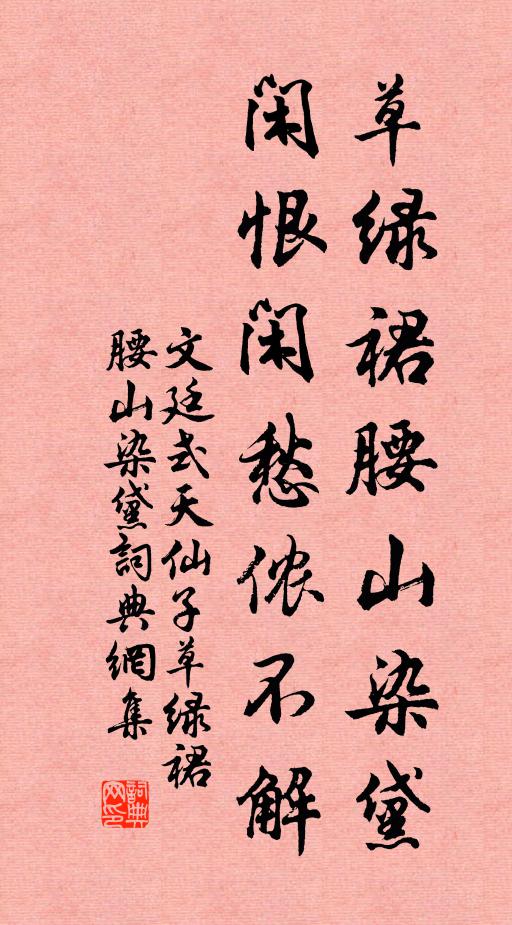 草绿裙腰山染黛
闲恨闲愁侬不解
文廷式天仙子草绿裙
腰山染黛詞典網集
詞典网印